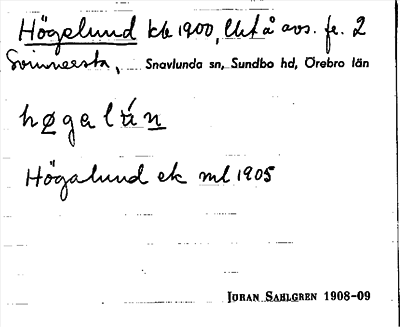 Högelund kb 1900, Utå avs. fr. 2
Svinnersta, Snavlunda sn, Sundbo hd, Örebro län
høgalún
Högalund ek ml 1905
JÖRAN SAHLGREN 1908-09